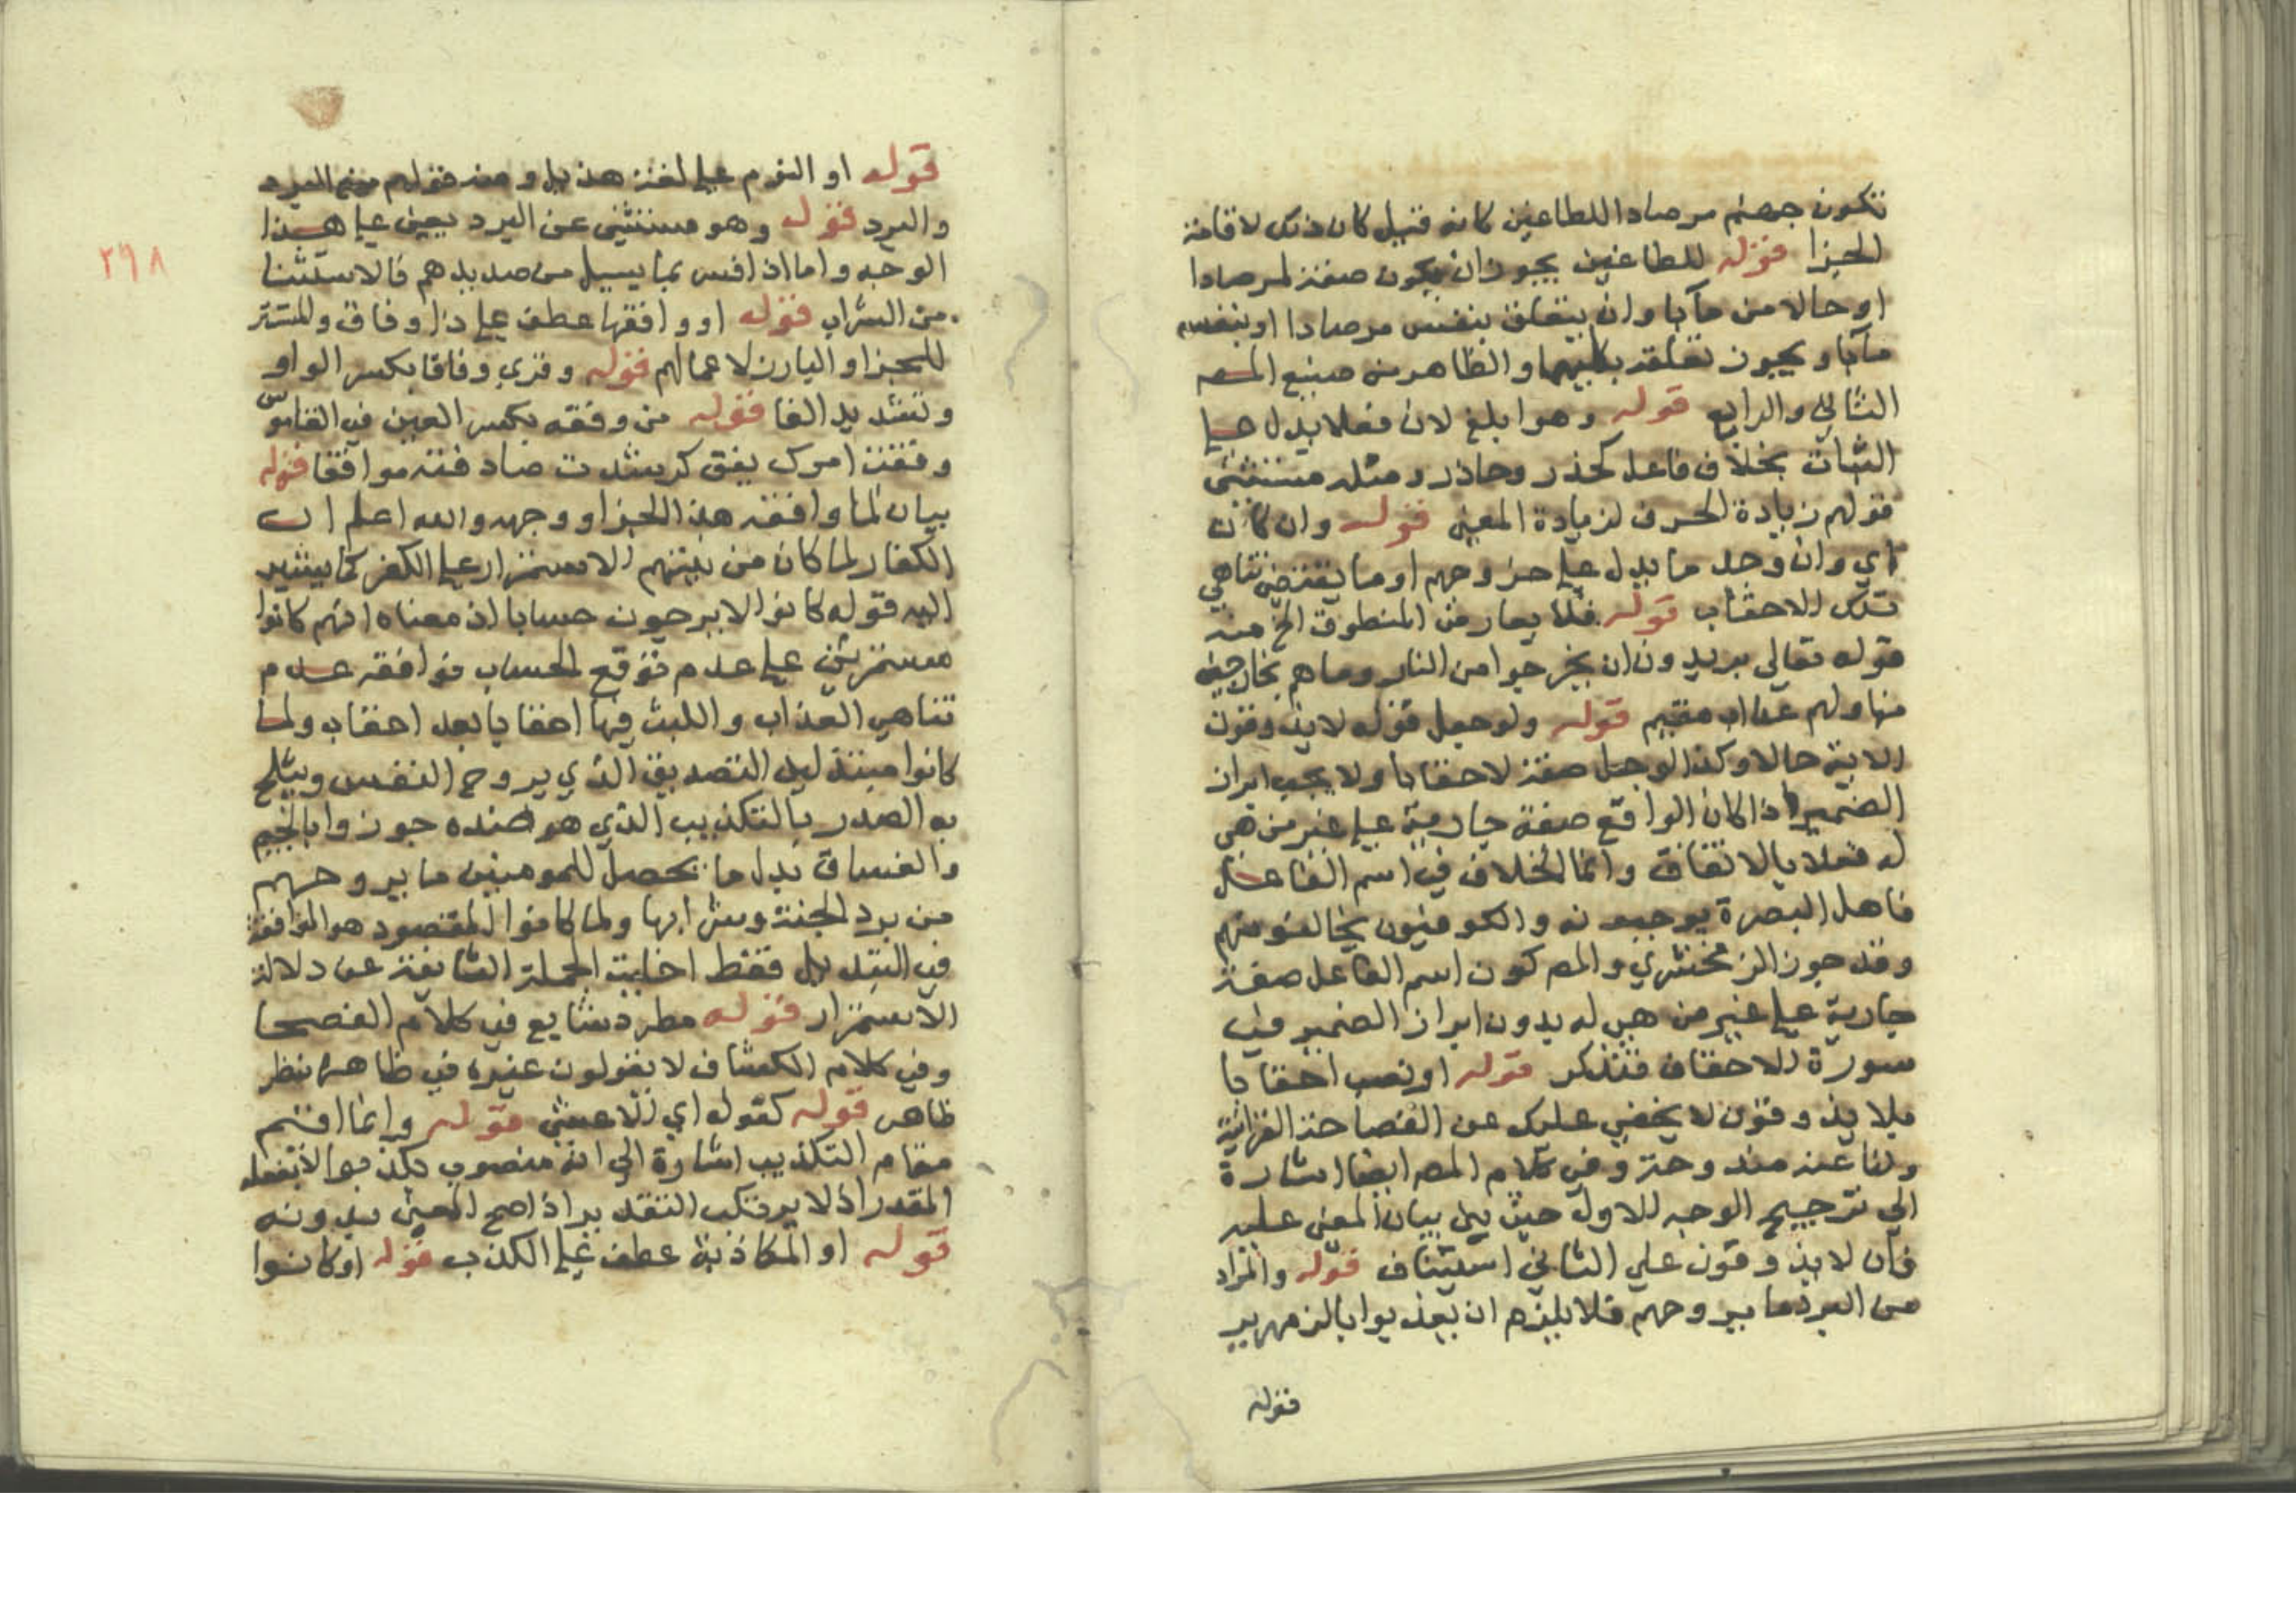 تكون جهنم مرصادا للطاغين كانه قيل كان ذلك لاقامة
الجزا قوله للطاغين يجوز ان يكون صفة لمرصادا
او حالا من مآبا وان يتعلق بنفس مرصادا او بنفس
مآبا ويجوز تعلقه بكليهما والظاهر من صنيع المصـ
الثاني والرابع قوله وهو ابلغ لان فعلا يدل على
الثبات بخلاف فاعل كحذر وحاذر ومثله مستثنى
قولهم زيادة الحرف لزيادة المعنى قوله وان كان
اي وان وجد ما يدل على خروجهم او ما يقتضي تناهي
تلك الاحقاب قوله فلا يعارض المنطوق الخ منه
قوله تعالى يريدون ان يخرجوا من النار وما هم بخارجين
منها ولهم عذاب مقيم قوله ولو جعل قوله لا يذوقون
الاية حالا وكذا لو جعل صفة لاحقابا ولا يجب ابراز
الضمير اذا كان الواقع صفة جارية على غير من هي
له فعلا بالاتفاق وانما الخلاف في اسم الفاعل
فاهل البصرة يوجبونه والكوفيون يخالفونهم
وقد جوز الزمخشري والمصـ كون اسم الفاعل صفة
جارية على غير من هي له بدون ابراز الضمير في
سورة الاحقاف فتذكر قوله او نصب احقابا
بلا يذوقون لا يخفى عليك عن الفصاحة القرانية
ولنا عنه مندوحة وفي كلام المصـ ايضا اشارة
الى ترجيح الوجه الاول حيث بين بيان المعنى عليه
فان لا يذوقون على الثاني استيناف قوله والمراد
من البرد ما يروحهم فلا يلزم ان يعذبوا بالزمهرير
قوله
٢٩٨
قوله او النوم على لغة هذيل ومنه قولهم منع البرد
والبرد قوله وهو مستثنى عن البرد يعني على هذا
الوجه واما اذا فسر بما يسيل من صديدهم فالاستثنا
من الشراب قوله او وافقها عطف على ذا وفاق والمستتر
للجزا والبارز لاعمالهم قوله وقري وفاقا بكسر الواو
وتشديد الفا قوله من وفقه بكسر العين في القاموس
وفقت امرك يفق كرشدت صادفته موافقا قوله
بيان لما وافقه هذا الجزا ووجهه والله اعلم ان
الكفار لما كان من نيتهم الاستمرار على الكفر كما يشير
اليه قوله كانوا لا يرجون حسابا اذ معناه انهم كانوا
مستمرين على عدم توقع الحساب فوافقه عدم
تناهي العذاب واللبث فيها احقابا بعد احقاب ولما
كانوا مبتذلين التصديق الذي يروح النفس ويثلج
به الصدر بالتكذيب الذي هو ضده جوزوا بالحميم
والغساق بدل ما يحصل للمومنين ما يروحهم
من برد الجنة وشرابها ولما كانوا المقصود هو الموافقة
في التبديل فقط اخليت الجملة الثانية عن دلالة
الاستمرار قوله مطرد شايع في كلام الفصحا
وفي كلام الكشاف لا يقولون غيره في ظاهره نظر
ظاهر قوله كقوله اي الاعشى قوله وانما اقيم
مقام التكذيب اشارة الى انه منصوب بكذبوا لا بفعله
المقدر اذ لا يرتكب التقدير اذا صح المعنى بدونه
قوله او المكاذبة عطف على الكذب قوله او كانوا